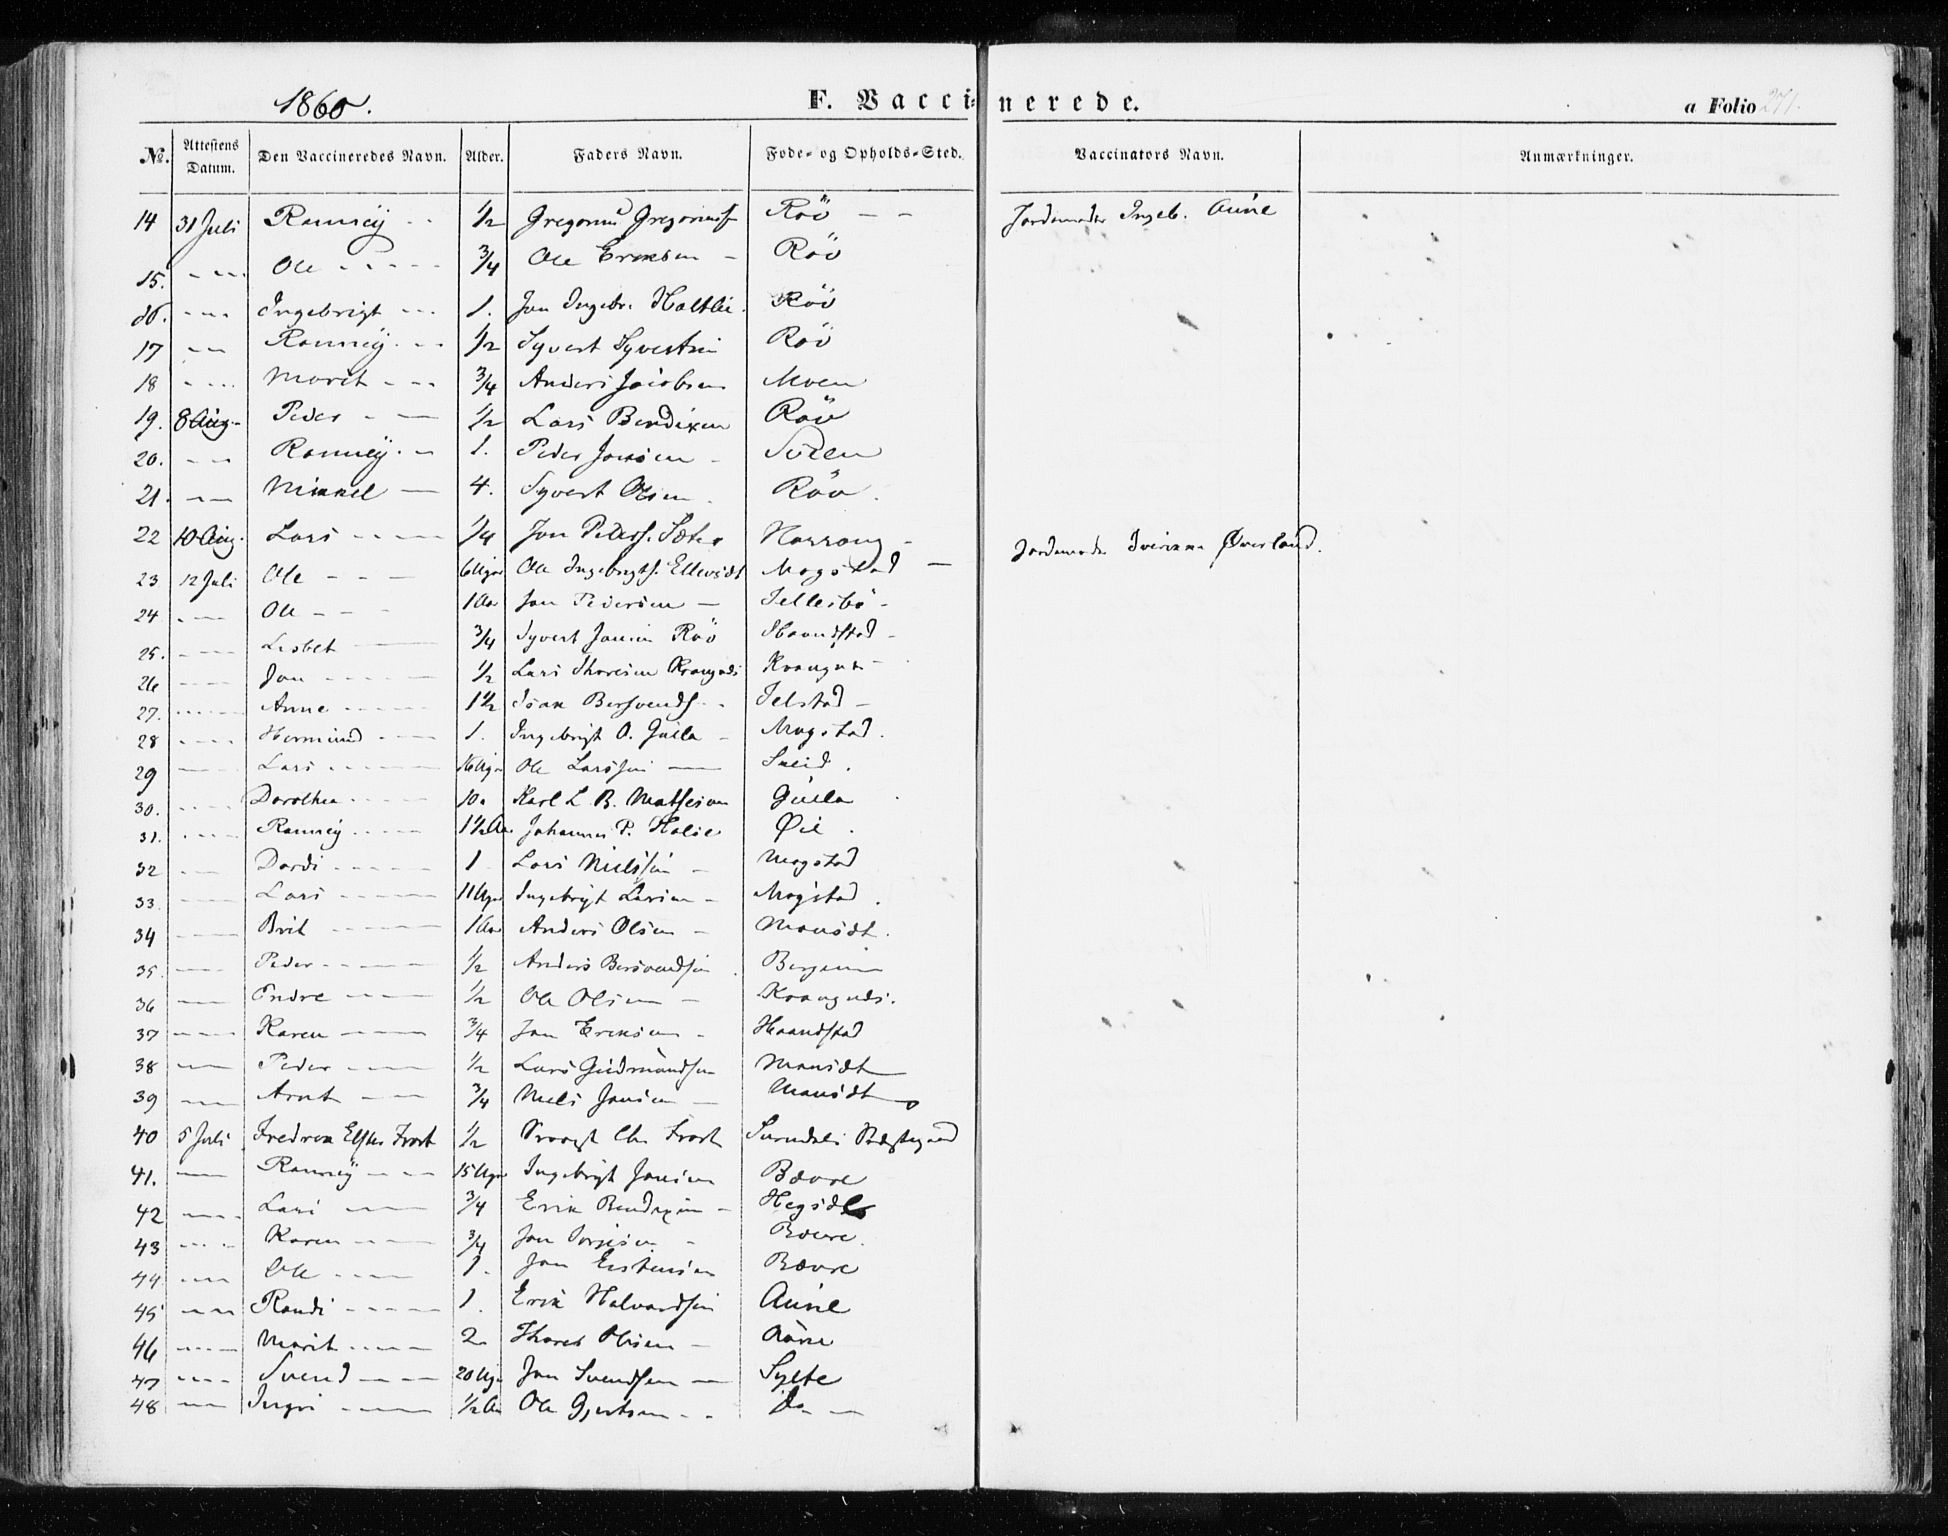 1860. F. Vaccinerede. a Folio 271.
No. Attestens Datum. Den Vaccineredes Navn. Alder. Faders Navn. Føde- og Opholds-Sted. Vaccinators Navn. Anmærkninger.
14 31 Juli Ranney - - 1/2 Gregorius Gregoriuss Röv - - Jordemoder Ingeb. Aune
15. - - - Ole - - - - 3/4 Ole Eriksen - Röv
16. - - - Ingebrigt - - - 1. Jon Ingebr. Holtlie. Röv
17 - - Ranney. - - 1/2 Syvert Syvertsen Röv
18 - - - Marit - - - 3/4 Anders Jacobsen Moen
19. 8 Aug. - Peder - - 1/2 Lars Bendixen Röv
20. - - Ranney. - 1. Peder Jonsen - Svien
21. - - Mikkel - 4. Syvert Olsen. Röv.
22 10 Aug. Lars - - - - 1/4 Jon Peders. Sæter Harrang - Jordemoder Overland.
23 12 Juli Ole - - - 6 Uger Ole Ingebrigts. Mogstad -
24 - - - Ole - - - 1 Aar Jon Pedersen - Tellesbö -
25. - - - Lisbet - 3/4 Syvert Jonsen Röv Haandstad -
26 - - - Jon - - - - 1/2 Lars Thoresen -
27. - - - Anne - - - - 1 1/2 Isak Bersvends. - Telstad -
28 - - - Hermund - - - 1. Ingebrigt O. Gulla - Mogstad.
29 - - - Lars - - - - 16 Uger Ole Larssen - Sneid.
30. - - - Dorothea - - - - 10. Karl L. B. Mathesen Gulla
31. - - - Ranney - - - 1 1/2 Aar Johannes P. Øie.
32 - - Dordi - - - - 1 Lars Nielssen - Mogstad
33. - - - Lars - - - - 11 Uger Ingebrigt Larsen - Mogstad.
34 - - - Brit - - - - 1 Aar Anders Olsen - Mausæt.
35. - - - Peder - - - - 1/2 Anders Bersvendsen.
36 - - - Endre - - - 1/2 Ole Olsen -
37 - - - Karen - - - 3/4 Jon Eriksen - Haandstad
38 - - - Peder - - - 1/2 Lars Gudmundsen Mausæt
39 - - - Arnt - - - 3/4 Niels Jonsen - Mausæt
40 5 Juli Fredrik Frost 1/2 Frost Surndals Præstegaard
41. - - Ranney - - - 15 Uger Ingebrigt Jonsen Bævre
42 - - - Lars - - 3/4 Erik Bendixen -
43 - - - Karen - - - 3/4 Jon - Bævre.
44 - - - Ole - - - 1. Jon Eistensen Bævre
45 - - - Randi - - - - 1. Erik Halvordsen Aune
46 - - - Marit - - - - 2 Thores Olsen - Aune
47 - - - Svend - - - 20 Uger Jon Svendsen - Sylte
48 - - - Ingri - - - 1/2 Aar Ole Gjertsen - - Do -